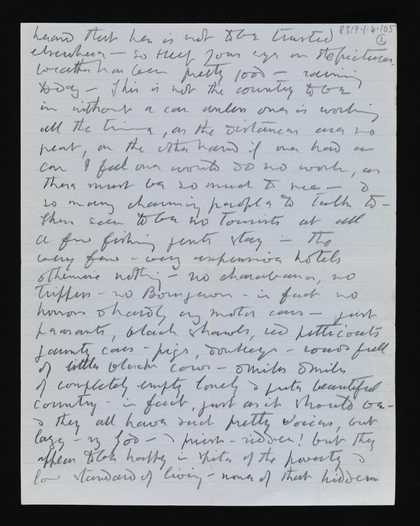 8317.1.4.105
2
heard that he is not to be trusted
elsewhere — so keep your eye on the pictures.
Weather has been pretty good — raining
today — This is not the country to be
in without a car unless one is working
all the time, as the distances are so
great, on the other hand if one had a
car I feel one would do no work, as
there must be so much to see — &
so many charming people to talk to —
There seem to be no tourists at all
a few fishing gents stay in the
very few — very expensive hotels
otherwise nothing — no charabancs, no
trippers — no Bourgeois — in fact no
horrors & hardly any motor cars — just
peasants, black shawls, red petticoats
jaunty cars — pigs, donkeys — roads full
of little black cows — & miles & miles
of completely empty lonely & quite beautiful
country — in fact, just as it should be —
& they all have such pretty voices, but
lazy — no good — & priest-ridden! but they
appear to be happy in spite of the poverty &
low standard of living — none of that hidden